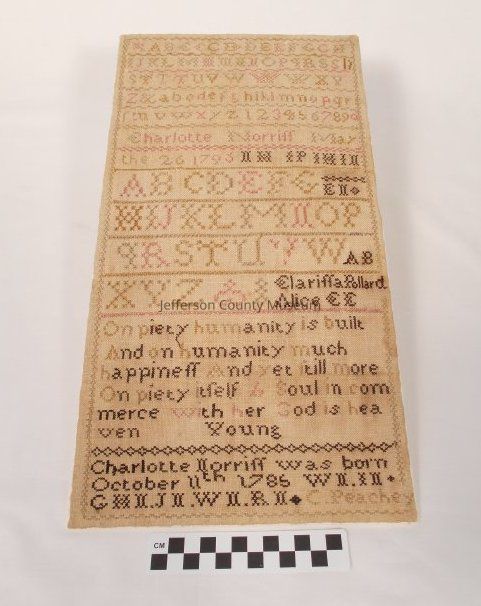 A B C D E F G H
I J K L M
S T T U V W W X Y
Z & a b c d e f g h i k l m n o p q r
s t u v w x y z 1 2 3 4 5 6 7 8 9
Charlotte Norriff May
the 26 1795
A B C D E F G
E N
H I J K L M N O P
q R S T U V W A B
X Y Z & Clariffa Pollard
Alice E E
Jefferson County Museum
On piety humanity is built
And on humanity much
happineff And yet ftill more
On piety itfelf A Soul in com
merce with her God is hea
ven Young
Charlotte Norriff was born
October 11th 1785 W N . I N
G H N . J N . W N . R N C Peachey
CM